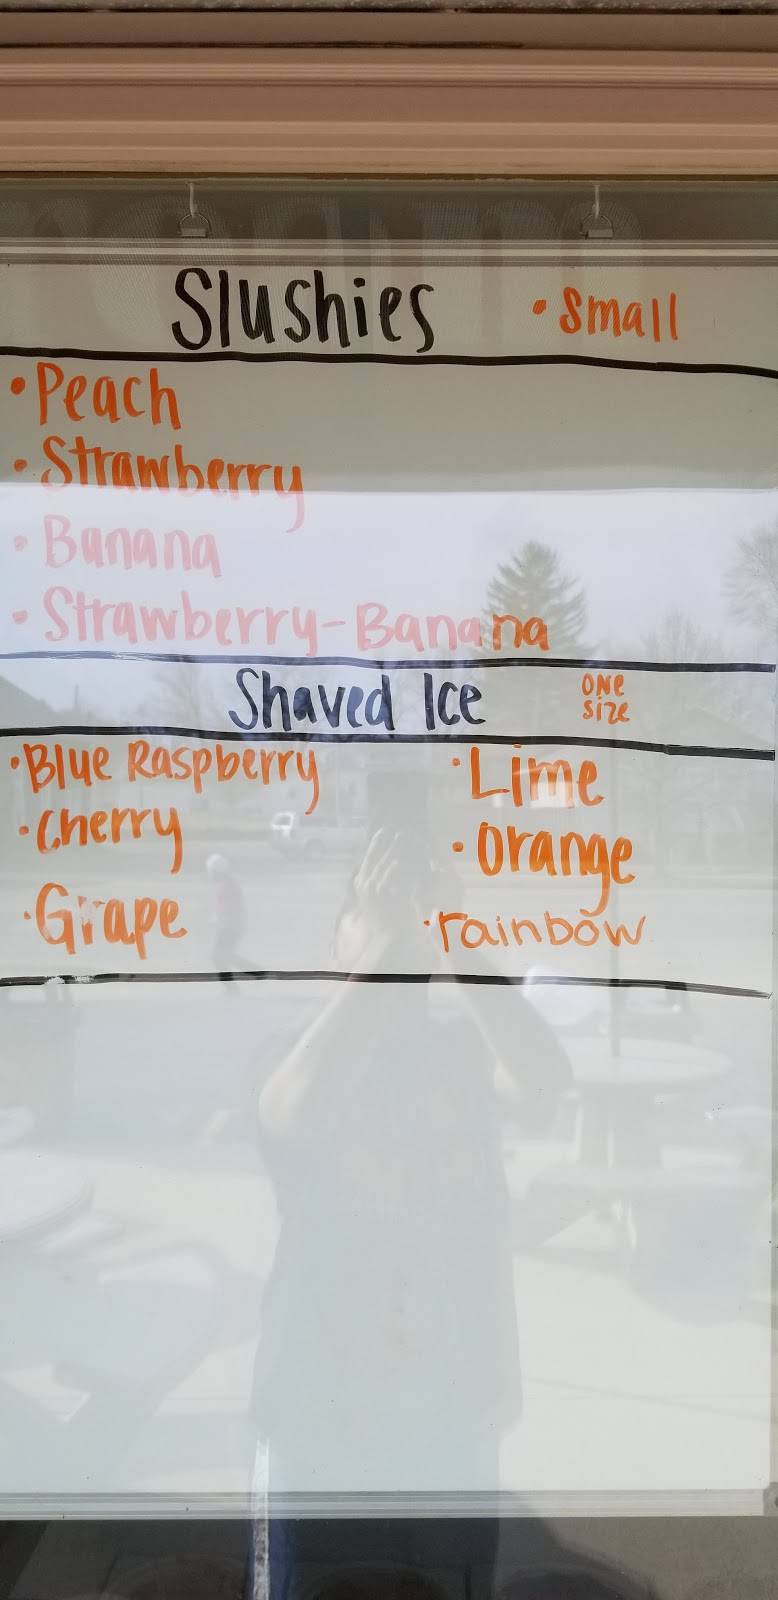 Slushies • Small
• Peach
• Strawberry
• Banana
• Strawberry-Banana
Shaved Ice ONE Size
• Blue Raspberry
• Cherry
• Grape
• Lime
• Orange
• rainbow